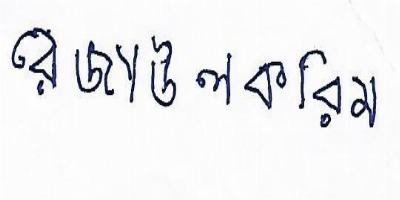 রেজাউল করিম